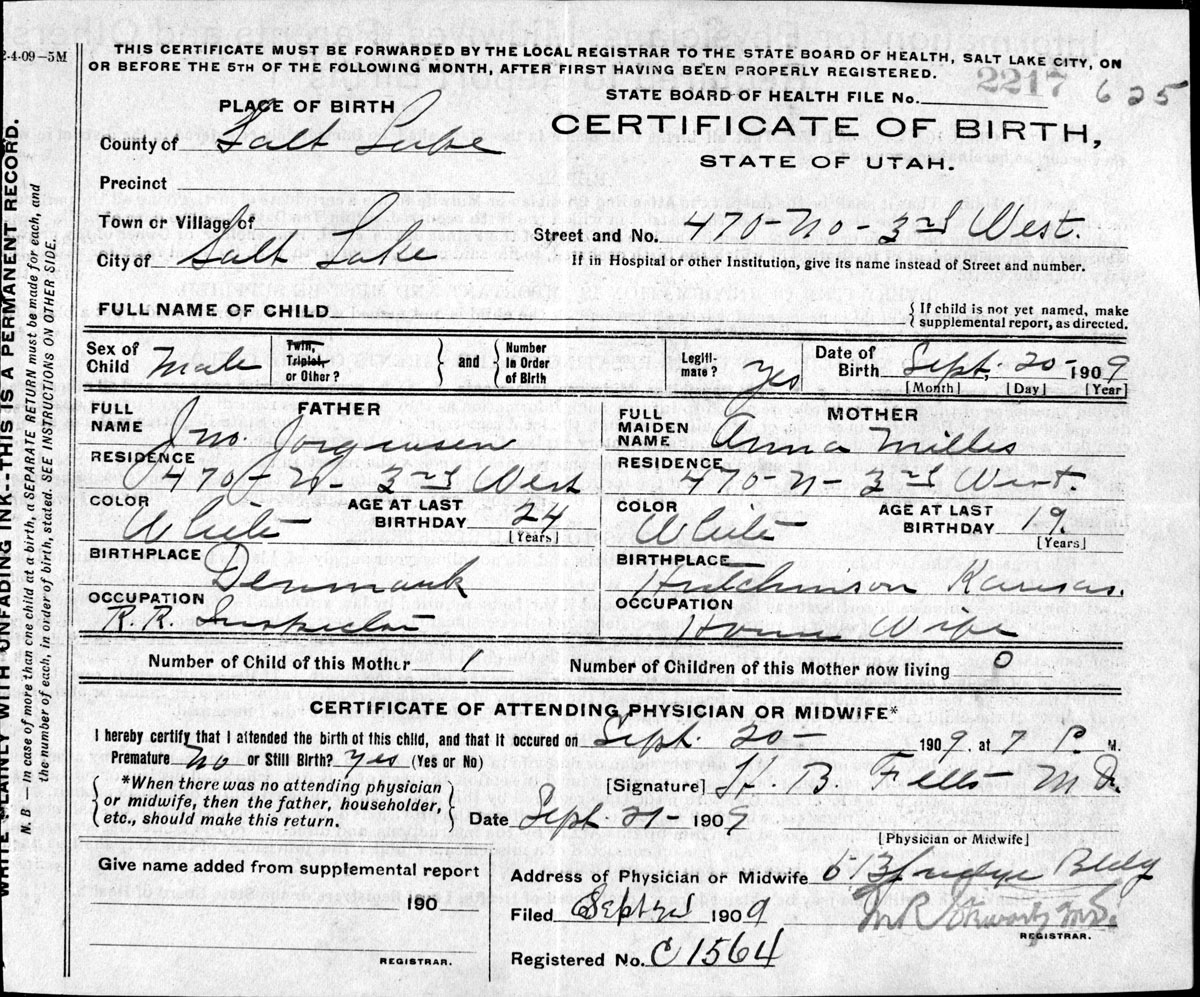 2-4-09-5M
THIS CERTIFICATE MUST BE FORWARDED BY THE LOCAL REGISTRAR TO THE STATE BOARD OF HEALTH, SALT LAKE CITY, ON
OR BEFORE THE 5TH OF THE FOLLOWING MONTH, AFTER FIRST HAVING BEEN PROPERLY REGISTERED.
STATE BOARD OF HEALTH FILE No. 2217 625
PLACE OF BIRTH
CERTIFICATE OF BIRTH,
STATE OF UTAH.
County of Salt Lake
Precinct
Town or Village of
City of Salt Lake
Street and No. 470-No-3rd West.
If in Hospital or other Institution, give its name instead of Street and number.
FULL NAME OF CHILD
{ If child is not yet named, make
supplemental report, as directed.
Sex of Child Male
Twin, Triplet, or Other?
} and {
Number In Order of Birth
Legitimate? yes
Date of Birth Sept, 20- 1909
[Month] [Day] [Year]
FATHER
FULL NAME Jno. Jorgensen
RESIDENCE 470-N-3rd West
COLOR White
AGE AT LAST BIRTHDAY 24 [Years]
BIRTHPLACE Denmark
OCCUPATION R.R. Inspector
MOTHER
FULL MAIDEN NAME Anna Milles
RESIDENCE 470-N-3rd West.
COLOR White
AGE AT LAST BIRTHDAY 19. [Years]
BIRTHPLACE Hutchinson Kansas.
OCCUPATION House Wife
Number of Child of this Mother 1
Number of Children of this Mother now living 0
CERTIFICATE OF ATTENDING PHYSICIAN OR MIDWIFE*
I hereby certify that I attended the birth of this child, and that it occured on Sept. 20- 1909, at 7 P. M.
Premature No or Still Birth? Yes (Yes or No)
{ *When there was no attending physician
or midwife, then the father, householder,
etc., should make this return. }
[Signature] H. B. Felts M D.
Date Sept. 21- 1909
[Physician or Midwife]
Give name added from supplemental report
190
REGISTRAR.
Address of Physician or Midwife 613 Judge Bldg
Filed Sept 21 1909
REGISTRAR.
Registered No. C1564
WRITE PLAINLY WITH UNFADING INK--THIS IS A PERMANENT RECORD.
N. B.—In case of more than one child at a birth, a SEPARATE RETURN must be made for each, and
the number of each, in order of birth, stated. SEE INSTRUCTIONS ON OTHER SIDE.